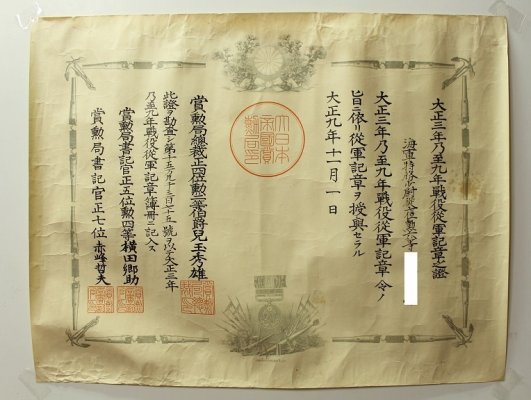 大正三年乃至九年戦役従軍記章之證
大正三年乃至九年戦役従軍記章令ノ
旨ニ依リ従軍記章ヲ授與セラル
大正九年十一月一日
大日本
帝國賞
勲局印
賞勲局總裁正四位勲二等伯爵兒玉秀雄
此證ヲ勘査シ第十 号ヲ以テ大正三年
乃至九年戦役従軍記章簿冊ニ記入ス
賞勲局書記官正五位勲四等横田郷助
賞勲局書記官正七位赤峰哲夫